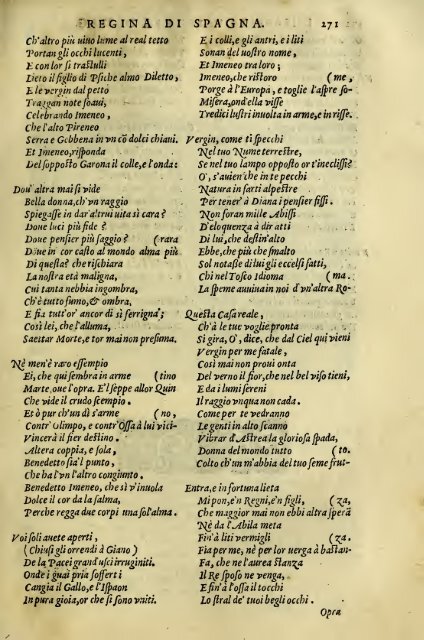 REGINA DI SPAGNA. 271
Ch'altro più uiuo lume al real tetto
Portan gli occhi lucenti,
E con lor si trastulli
Lieto il figlio di Psiche almo Diletto,
E le vergin dal petto
Traggan note soaui,
Celebrando Imeneo,
Che l'alto Pireneo
Serra e Gebbena in vn cō dolci chiaui.
Et Imeneo, risponda
Del sopposto Garona il colle, e l'onda:
Dou' altra mai si vide
Bella donna, ch'vn raggio
Spiegasse in dar'altrui uita sì cara ?
Doue luci più fide ?
Doue pensier più saggio ? (rara
Doue in cor casto al mondo alma più
Di questa? che rischiara
La nostra età maligna,
Cui tanta nebbia ingombra,
Ch'è tutto fumo, & ombra,
E fia tutt'or' ancor di sì ferrigna;
Così lei, che l'alluma,
Saettar Morte, e tor mai non presuma.
Nè men'è raro essempio
Ei, che qui sembra in arme (tino
Marte, oue l'opra. E'l seppe allor Quin
Che vide il crudo scempio.
Et ò pur ch'un dì s'arme (no,
Contr' Olimpo, e contr'Ossa à lui vici-
Vincerà il fier destino.
Altera coppia, e sola,
Benedetto sia'l punto,
Che ha l'vn l'altro congiunto.
Benedetto Imeneo, che sì v'inuola
Dolce il cor da la salma,
Perche regga due corpi una sol'alma.
Voi soli auete aperti,
( Chiusi gli orrendi à Giano )
De la Pace i grand'usci irruginiti.
Onde i guai pria sofferti
Cangia il Gallo, e l'Ispaon
In pura gioia, or che si sono vniti.
E i colli, e gli antri, e i liti
Sonan del uostro nome,
Et Imeneo tra loro;
Imeneo, che ristoro (me,
Porge à l'Europa, e toglie l'aspre so-
Misera, ond'ella visse
Tredici lustri inuolta in arme, e in risse.
Vergin, come ti specchi
Nel tuo Nume terrestre,
Se nel tuo lampo opposto or t'ineclissi?
O', s'auien che in te pecchi
Natura in farti alpestre
Per tener' à Diana i pensier fissi.
Non foran mille Abissi
D'eloquenza à dir atti
Di lui, che destin'alto
Ebbe, che più che smalto
Sol notasse di lui gli eccelsi fatti,
Chi nel Tosco Idioma (ma.
La speme auuiua in noi d'vn'altra Ro-
Questa Casa reale,
Ch'à le tue voglie pronta
Si gira, O', dice, che dal Ciel qui vieni
Vergin per me fatale,
Così mai non proui onta
Del verno il fior, che nel bel viso tieni,
E da i lumi sereni
Il raggio vnqua non cada.
Come per te vedranno
Le genti in alto scanno
Vibrar d'Astrea la gloriosa spada,
Donna del mondo tutto (to.
Colto ch'un m'abbia del tuo seme frut-
Entra, e in fortuna lieta
Mi pon, e'n Regni, e'n figli, (za,
Che maggior mai non ebbi altra sperā
Nè da l'Abila meta
Fin'à liti vermigli (za.
Fia per me, nè per lor uerga à bastan-
Fa, che ne l'aurea stanza
Il Re sposo ne venga,
E fin'à l'ossa il tocchi
Lo stral de' tuoi begli occhi.
Opra